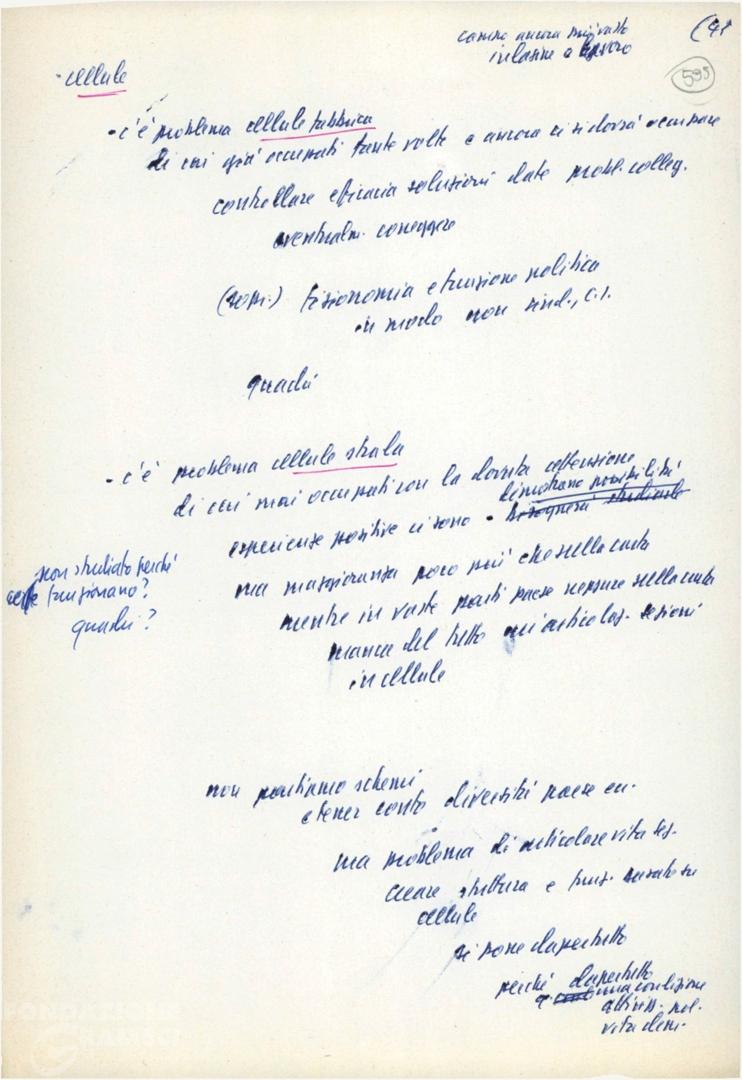 campo ancora più vasto
in relazione a lavoro
(41
595
- cellule
- c'è problema cellule fabbrica
di cui già occupati tante volte e ancora ci si dovrà occupare
controllare efficacia soluzioni date probl. colleg.
eventualm. correggere
(somm.) fisionomia e funzione politica
in modo non sind., c.i.
quadri
- c'è problema cellule strada
di cui mai occupati con la dovuta attenzione
esperienze positive ci sono - dimostrano possibilità
bisognerà studiarle
ma maggioranza poco più che sulla carta
mentre in vaste parti paese neppure sulla carta
manca del tutto un'articolaz. sezioni
in cellule
non studiato perché
certe funzionano?
quadri?
non partiamo schemi
e tener conto diversità paese ecc.
ma problema di articolare vita sez.
creare struttura e funz. basate su
cellule
si pone dappertutto
perché dappertutto
è una condizione
attivizz. pol.
vita dem.
FONDAZIONE
GRAMSCI